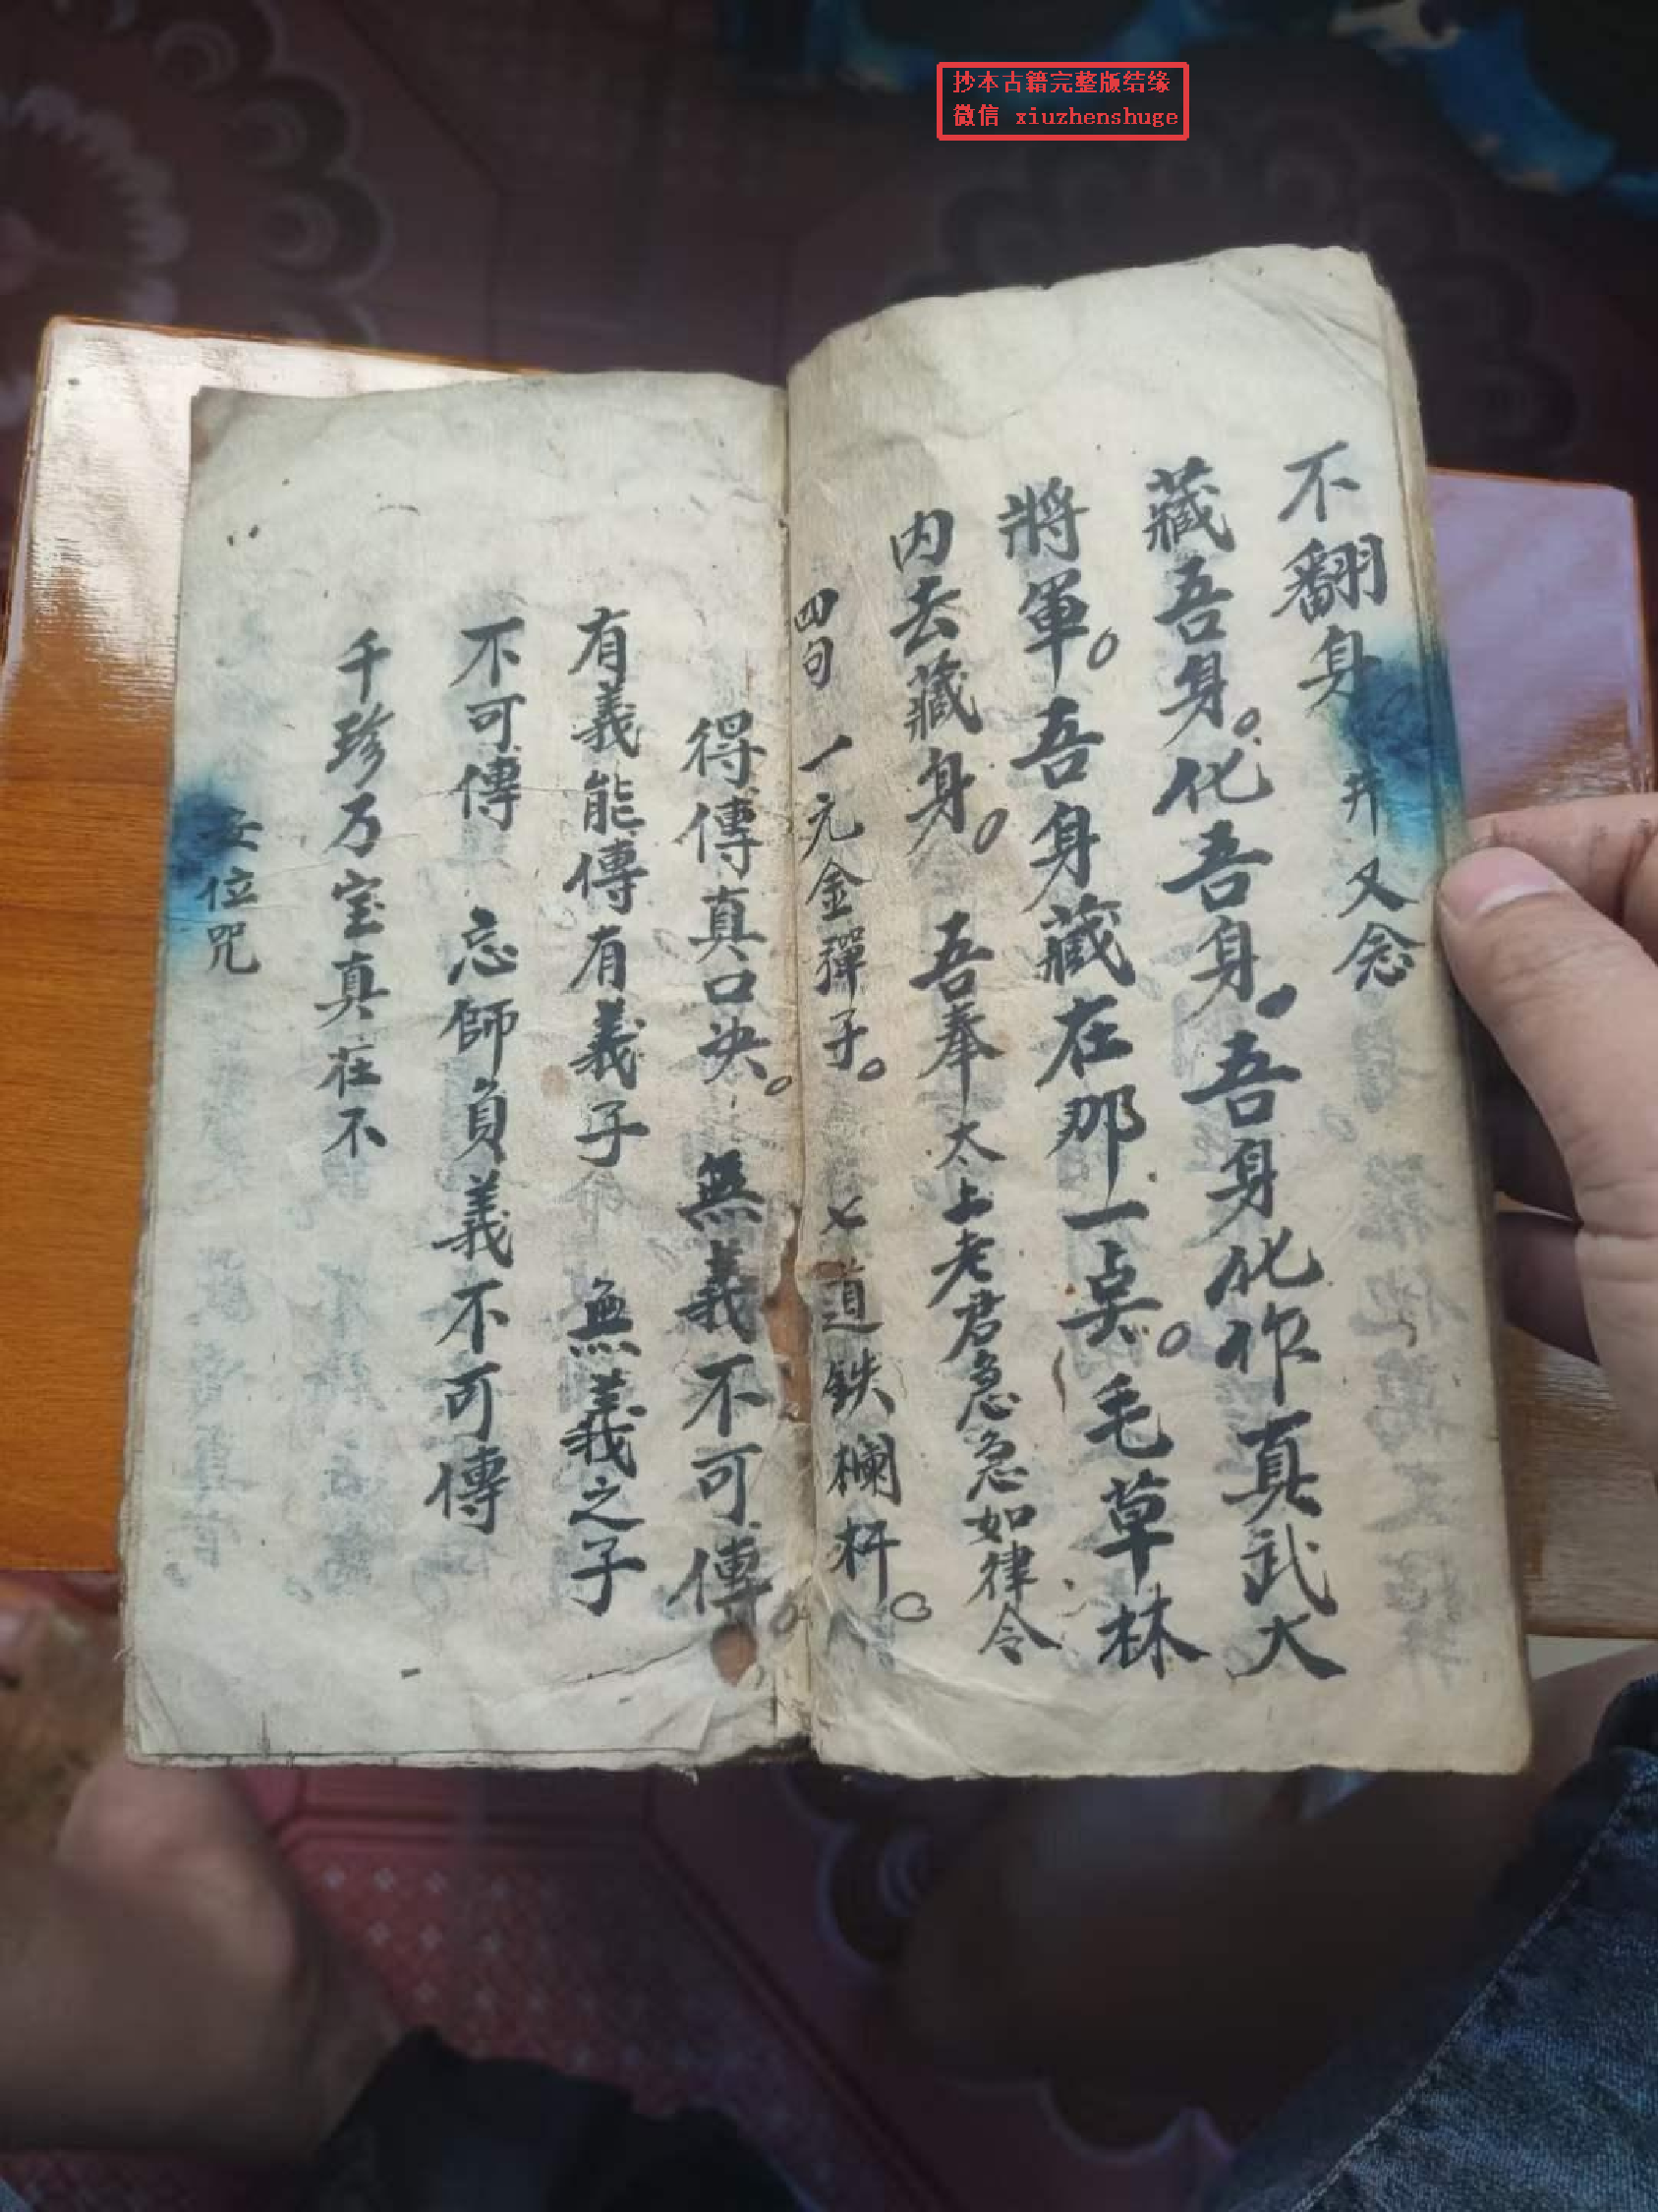 抄本古籍完整版结缘
微信 xiuzhenshuge
不翻身 又念
藏吾身。化吾身。吾身化作真武大
將軍。吾身藏在那一奌。毛草林
内去藏身。吾奉太上老君急急如律令
四句 一元金彈子。七道鉄欄杆。
得傳真口决。無義不可傳。
有義能傳有義子 無義之子
不可傳 忘師負義不可傳
千珍万宝真在不
安位咒